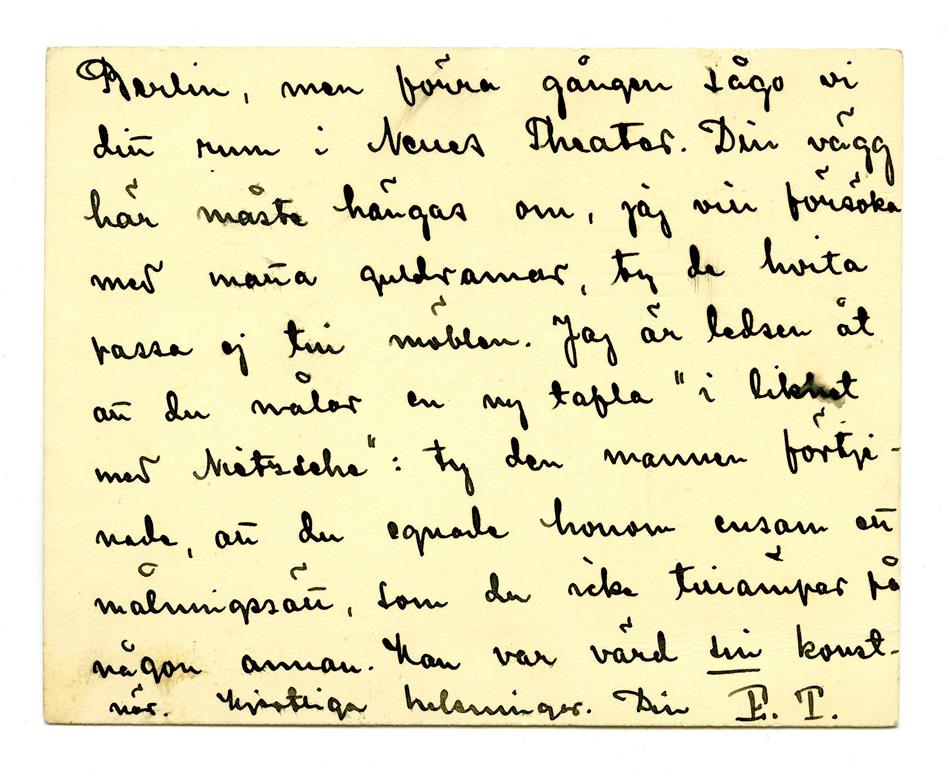 Berlin, men förra gången sågo vi
ditt rum i Neues Theater. Din vägg
här måste hängas om, jag vill försöka
med matta guldramar, ty de hvita
passa ej till möblen. Jag är ledsen åt
att du målar en ny tafla "i likhet
med Nietzsche": ty den mannen förtje-
nade, att du egnade honom ensam ett
målningssätt, som du icke tillämpar på
någon annan. Han var värd sin konst-
när. Hjärtliga helsningar. Din E. T.